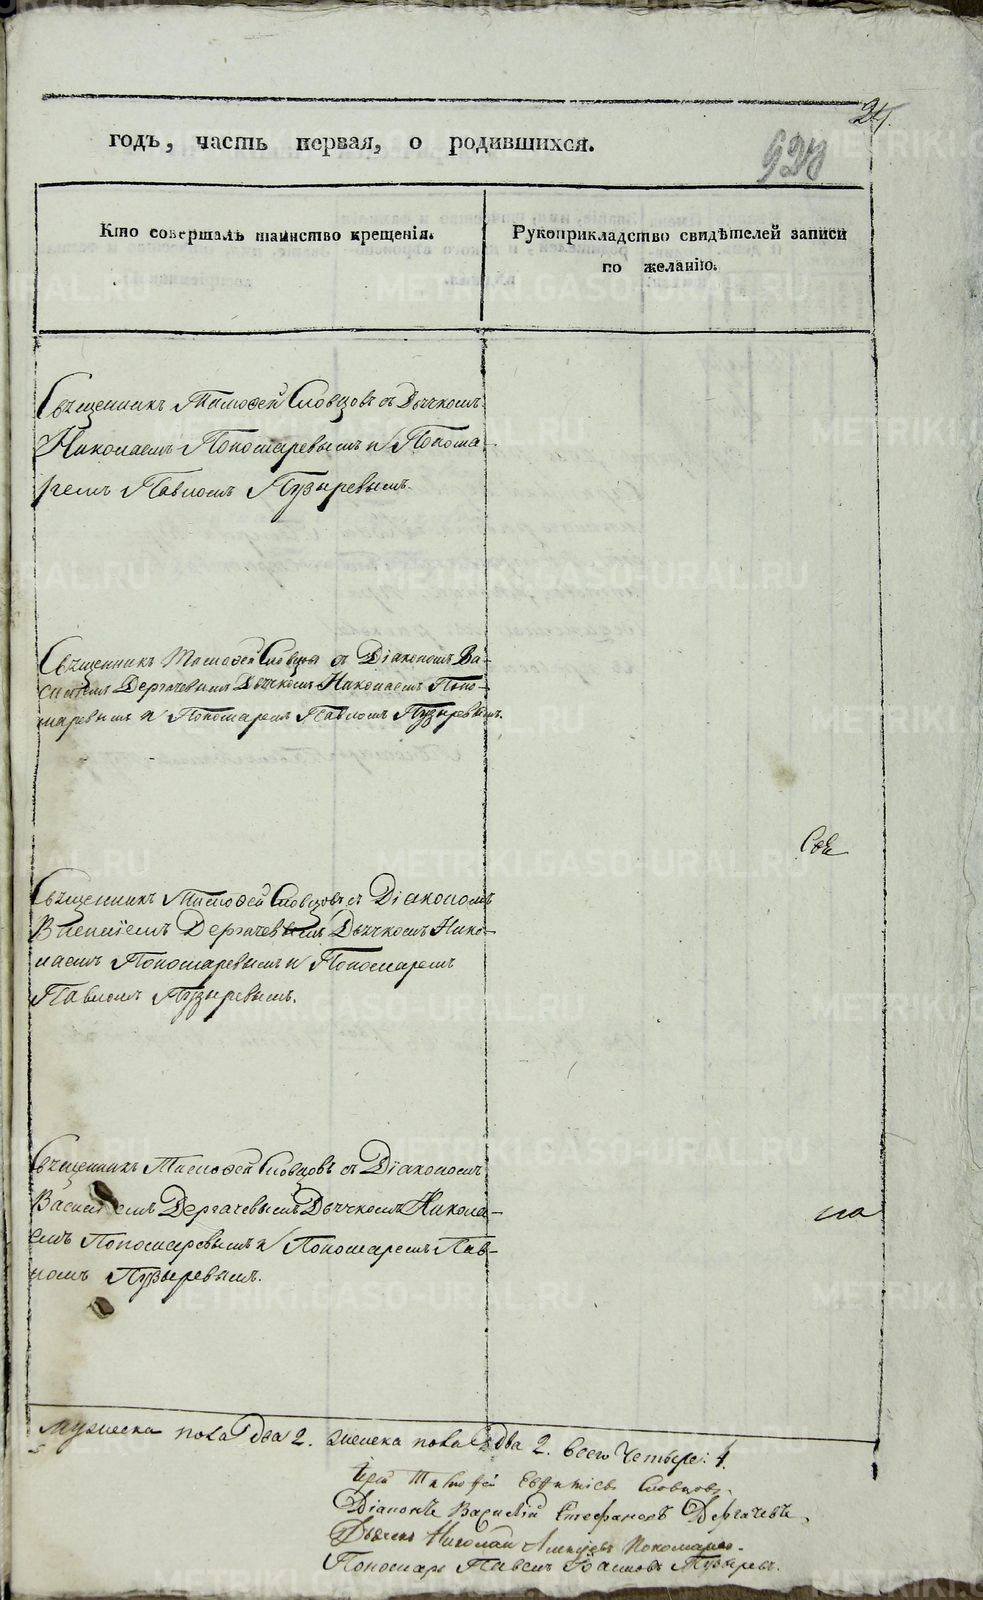 24.
928
годъ, часть первая, о родившихся.
Кто совершалъ таинство крещенія.
Рукоприкладство свидѣтелей записи
по желанію.
Священникъ Тимофей Словцовъ съ Дьячкомъ
Николаемъ Пономаревымъ и Понома-
ремъ Павломъ Пузыревымъ.
Священникъ Тимофей Словцовъ съ Діакономъ Ва-
силіемъ Дергачевымъ Дьячкомъ Николаемъ Поно-
маревымъ и Пономаремъ Павломъ Пузыревымъ.
Свя
Священникъ Тимофей Словцовъ съ Діакономъ
Василіемъ Дергачевымъ Дьячкомъ Нико-
лаемъ Пономаревымъ и Пономаремъ
Павломъ Пузыревымъ.
Священникъ Тимофей Словцовъ съ Діакономъ
Василіемъ Дергачевымъ Дьячкомъ Никола-
емъ Пономаревымъ и Пономаремъ Пав-
ломъ Пузыревымъ.
мужеска пола два 2. женска пола два 2. всего Четыре: 4.
Іерей Тимофей Евфиміевъ Словцовъ.
Діаконъ Василій Стефановъ Дергачевъ.
Дьячекъ Николай Пономаревъ.
Пономарь Павелъ Пузыревъ.
METRIKI.GASO-URAL.RU